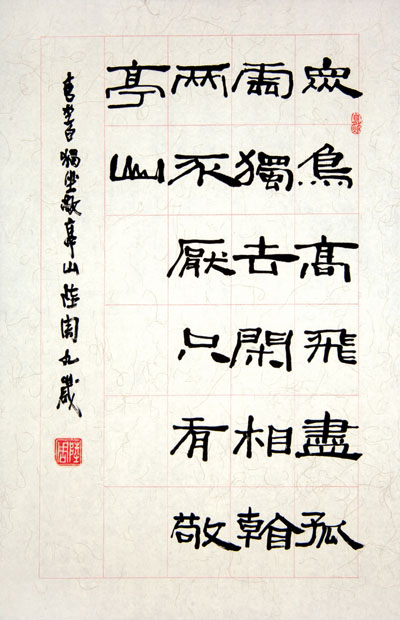 眾鳥高飛盡孤
雲獨去閑相看
兩不厭只有敬
亭山
書李白獨坐敬亭山 陸周九歲
陸周